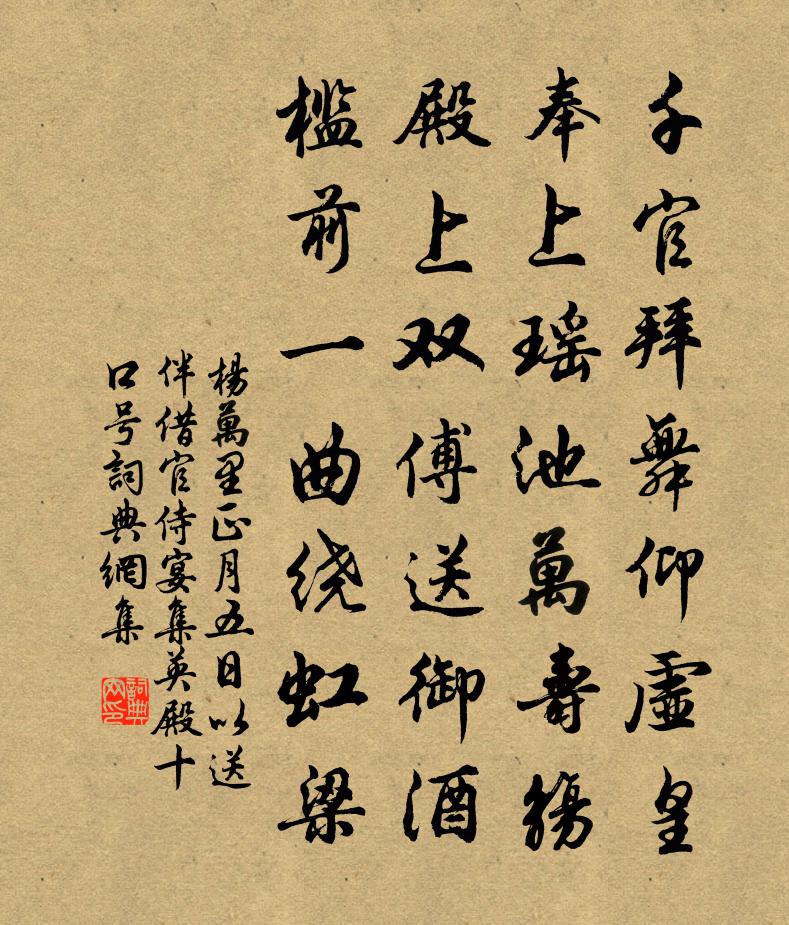 千官拜舞仰虛皇
奉上瑶池萬壽觴
殿上双傅送御酒
槛前一曲绕虹梁
楊萬里正月五日以送
伴借官侍宴集英殿十
口号詞典網集
詞典
网印